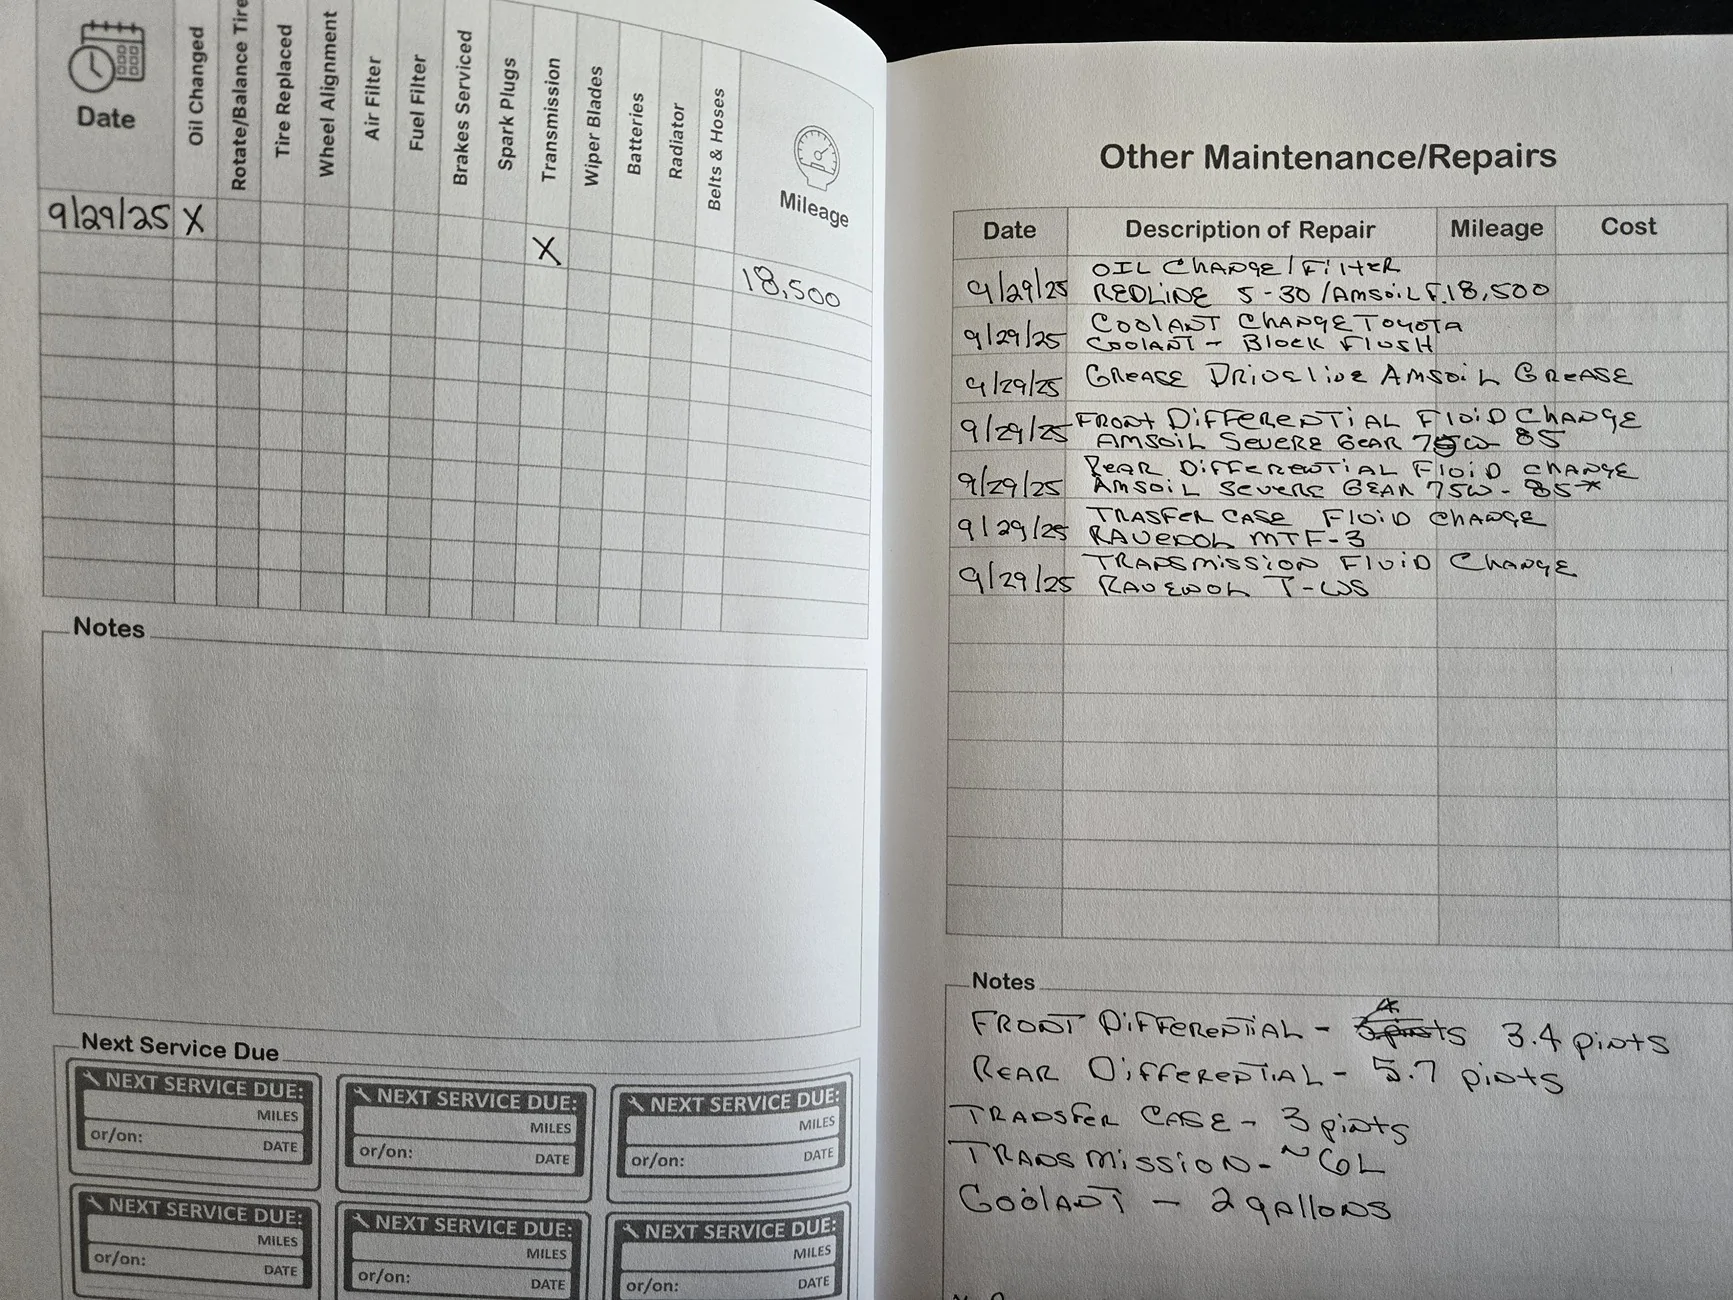 Date
Oil Changed
Rotate/Balance Tire
Tire Replaced
Wheel Alignment
Air Filter
Fuel Filter
Brakes Serviced
Spark Plugs
Transmission
Wiper Blades
Batteries
Radiator
Belts & Hoses
Mileage
9/29/25 X
X
18,500
Notes
Next Service Due
NEXT SERVICE DUE:
MILES
or/on: DATE
NEXT SERVICE DUE:
MILES
or/on: DATE
NEXT SERVICE DUE:
MILES
or/on: DATE
NEXT SERVICE DUE:
MILES
or/on: DATE
NEXT SERVICE DUE:
MILES
or/on: DATE
NEXT SERVICE DUE:
MILES
or/on: DATE
Other Maintenance/Repairs
Date Description of Repair Mileage Cost
OIL CHANGE/FILTER
9/29/25 REDLINE 5-30/AMSOIL F. 18,500
COOLANT CHANGE TOYOTA
9/29/25 COOLANT - BLOCK FLUSH
9/29/25 GREASE DRIVELINE AMSOIL GREASE
FRONT DIFFERENTIAL FLUID CHANGE
9/29/25 AMSOIL SEVERE GEAR 75W-85
REAR DIFFERENTIAL FLUID CHANGE
9/29/25 AMSOIL SEVERE GEAR 75W-85*
TRASFER CASE FLUID CHANGE
9/29/25 RAVENOL MTF-3
TRANSMISSION FLUID CHANGE
9/29/25 RAVENOL T-WS
Notes
FRONT DIFFERENTIAL - 3.4 pints
REAR DIFFERENTIAL - 5.7 pints
TRANSFER CASE - 3 pints
TRANSMISSION - ~6L
COOLANT - 2 gallons